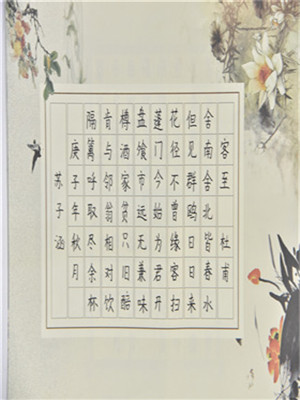 客至 杜甫
舍南舍北皆春水
但见群鸥日日来
花径不曾缘客扫
蓬门今始为君开
盘飧市远无兼味
樽酒家贫只旧醅
肯与邻翁相对饮
隔篱呼取尽余杯
庚子年秋月
苏子涵